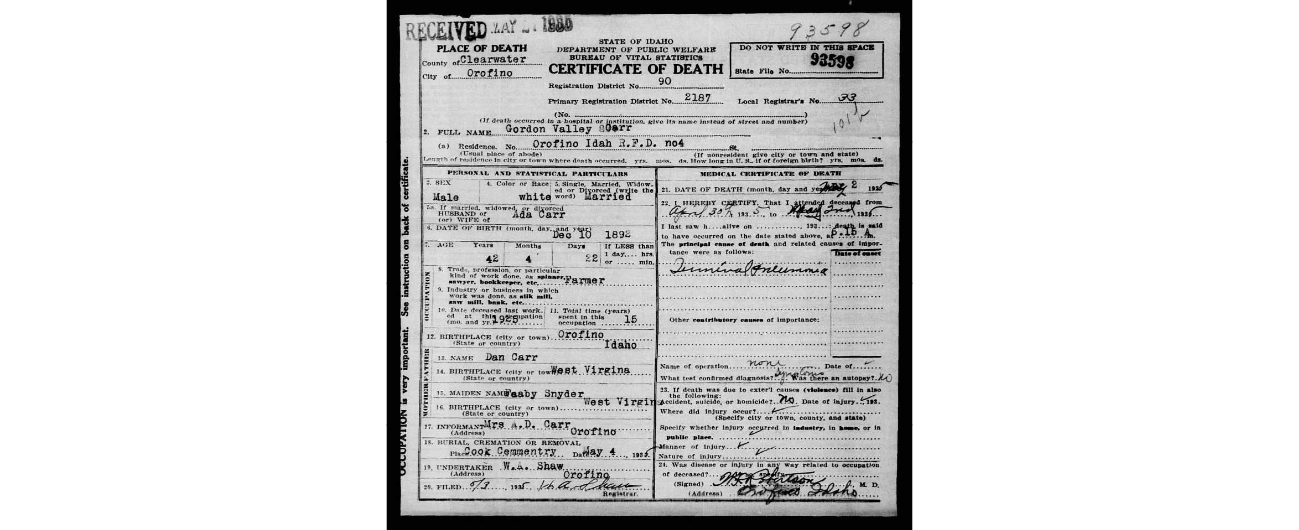 RECEIVED MAY
93598
PLACE OF DEATH
County of Clearwater
City of Orofino
STATE OF IDAHO
DEPARTMENT OF PUBLIC WELFARE
BUREAU OF VITAL STATISTICS
CERTIFICATE OF DEATH
DO NOT WRITE IN THIS SPACE
93598
State File No.
Registration District No. 90
Primary Registration District No. 2187 Local Registrar's No. 33
(No. )
(If death occurred in a hospital or institution, give its name instead of street and number)
2. FULL NAME Gordon Valley Carr
(a) Residence. No. Orofino Idah R.F.D. no4 St.
(Usual place of abode) (If nonresident give city or town and state)
Length of residence in city or town where death occurred. yrs. mos. ds. How long in U. S., if of foreign birth? yrs. mos. ds.
PERSONAL AND STATISTICAL PARTICULARS
3. SEX 4. Color or Race 5. Single, Married, Widowed or Divorced (write the word)
Male white Married
5a. If married, widowed, or divorced
HUSBAND of
(or) WIFE of Ada Carr
6. DATE OF BIRTH (month, day, and year)
Dec 10 1892
7. AGE Years Months Days If LESS than
1 day, hrs.
or min.
42 4 22
8. Trade, profession, or particular
kind of work done, as spinner,
sawyer, bookkeeper, etc. Farmer
9. Industry or business in which
work was done, as silk mill,
saw mill, bank, etc.
10. Date deceased last worked at this occupation
(mo. and yr.)
11. Total time (years)
spent in this
occupation 15
OCCUPATION
12. BIRTHPLACE (city or town) Orofino
(State or country) Idaho
FATHER
13. NAME Dan Carr
14. BIRTHPLACE (city or town) West Virgina
(State or country)
MOTHER
15. MAIDEN NAME Snyder
16. BIRTHPLACE (city or town) West Virgin
(State or country)
17. INFORMANT Mrs A.D. Carr
(Address) Orofino
18. BURIAL, CREMATION OR REMOVAL
Place Cook Cemmentry Date May 4, 1935
19. UNDERTAKER W.A. Shaw
(Address) Orofino
20. FILED 5/3, 1935
Registrar.
MEDICAL CERTIFICATE OF DEATH
21. DATE OF DEATH (month, day and year) May 2 1935
22. I HEREBY CERTIFY, That I attended deceased from
April 30th 1935, to May 2nd 1935
I last saw h alive on , 193 death is said
to have occurred on the date stated above, at 6.15 A
The principal cause of death and related causes of importance were as follows:
Date of onset
Terminal Pneumonia
Other contributory causes of importance:
Name of operation none Date of
What test confirmed diagnosis? Symptoms Was there an autopsy? No
23. If death was due to exter'l causes (violence) fill in also
the following:
Accident, suicide, or homicide? No Date of injury 193
Where did injury occur?
(Specify city or town, county, and state)
Specify whether injury occurred in industry, in home, or in
public place.
Manner of injury
Nature of injury
24. Was disease or injury in any way related to occupation
of deceased?
(Signed) M. D.
(Address) Orofino Idaho
OCCUPATION is very important. See instruction on back of certificate.